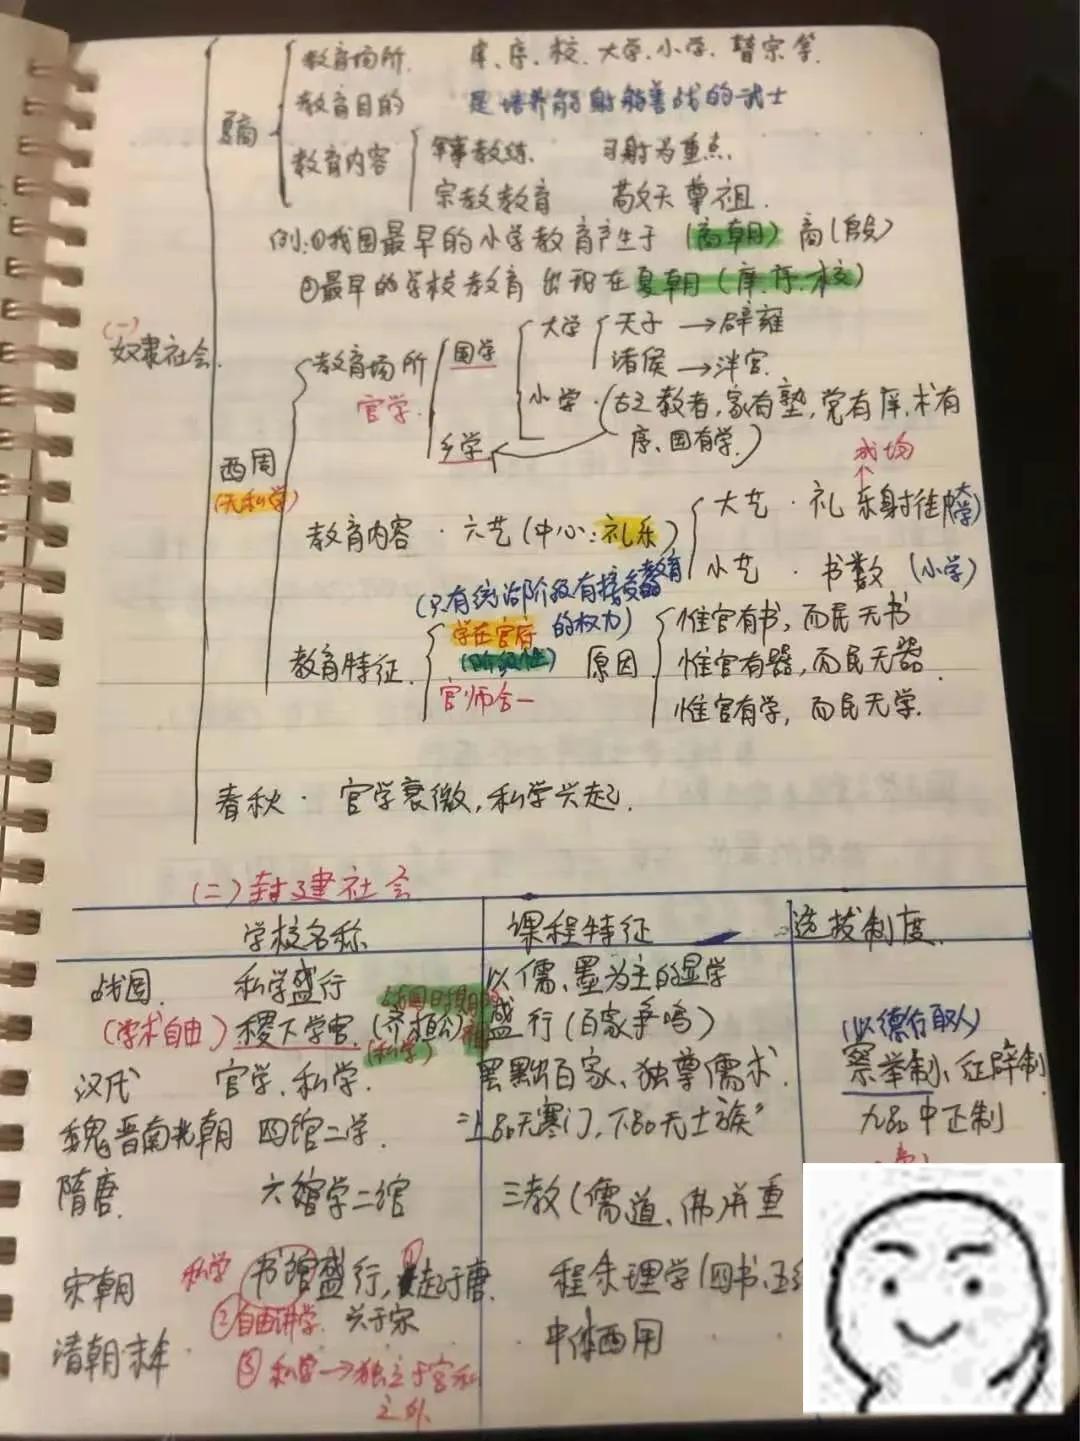 教育场所 庠、序、校、大学、小学、瞽宗等.
夏商
教育目的 是培养能射能善战的武士
教育内容
军事教练. 习射为重点.
宗教教育 敬天尊祖.
例:①我国最早的小学教育产生于(商朝)商(殷)
②最早的学校教育出现在夏朝(庠.序.校)
(一)
奴隶社会.
教育场所 国学 大学 天子→辟雍
诸侯→泮宫.
官学.
小学·(古之教者,家有塾,党有庠,术有
序、国有学)
乡学
成均
↑
西周
(无私学)
教育内容·六艺(中心:礼乐)
大艺·礼乐射御(大学)
小艺·书数(小学)
(只有统治阶级有接受教育
的权力)
教育特征.
学在官府
(阶级性)
官师合一
原因
惟官有书,而民无书
惟官有器,而民无器.
惟官有学,而民无学.
春秋·官学衰微,私学兴起.
(二)封建社会
学校名称 课程特征 选拔制度.
战国. 私学盛行 以儒、墨为主的显学
(学术自由)稷下学宫.(齐桓公) 盛行(百家争鸣)
战国时期的
(私学)
(以德行取人)
汉代 官学、私学. 罢黜百家、独尊儒术. 察举制、征辟制
魏晋南北朝 四馆二学. “上品无寒门,下品无士族” 九品中正制
隋唐. 六学二馆 三教(儒、道、佛)并重
宋朝 私学 书馆盛行, 起于唐. 程朱理学(四书、五
②自由讲学. 兴于宋
清朝末年 中体西用
③私学→独立于官私
之外